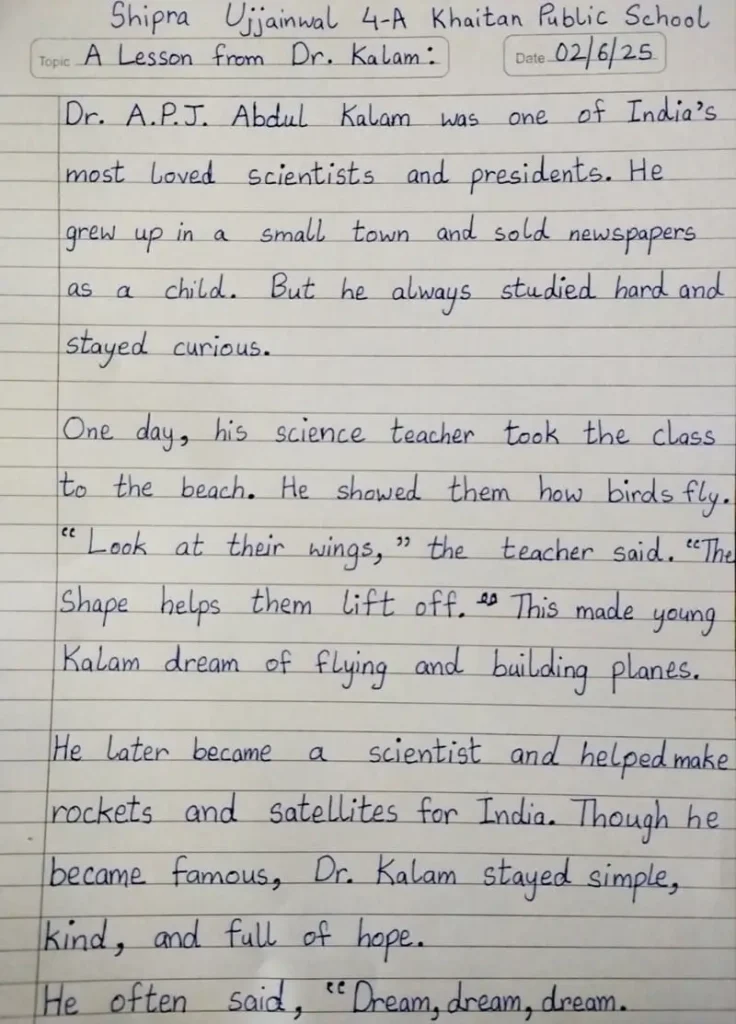 Shipra Ujjainwal 4-A Khaitan Public School
Topic A Lesson from Dr. Kalam: Date 02/6/25
Dr. A.P.J. Abdul Kalam was one of India's
most loved scientists and presidents. He
grew up in a small town and sold newspapers
as a child. But he always studied hard and
stayed curious.
One day, his science teacher took the class
to the beach. He showed them how birds fly.
“Look at their wings,” the teacher said. “The
Shape helps them lift off.” This made young
Kalam dream of flying and building planes.
He later became a scientist and helped make
rockets and satellites for India. Though he
became famous, Dr. Kalam stayed simple,
kind, and full of hope.
He often said, “Dream, dream, dream.